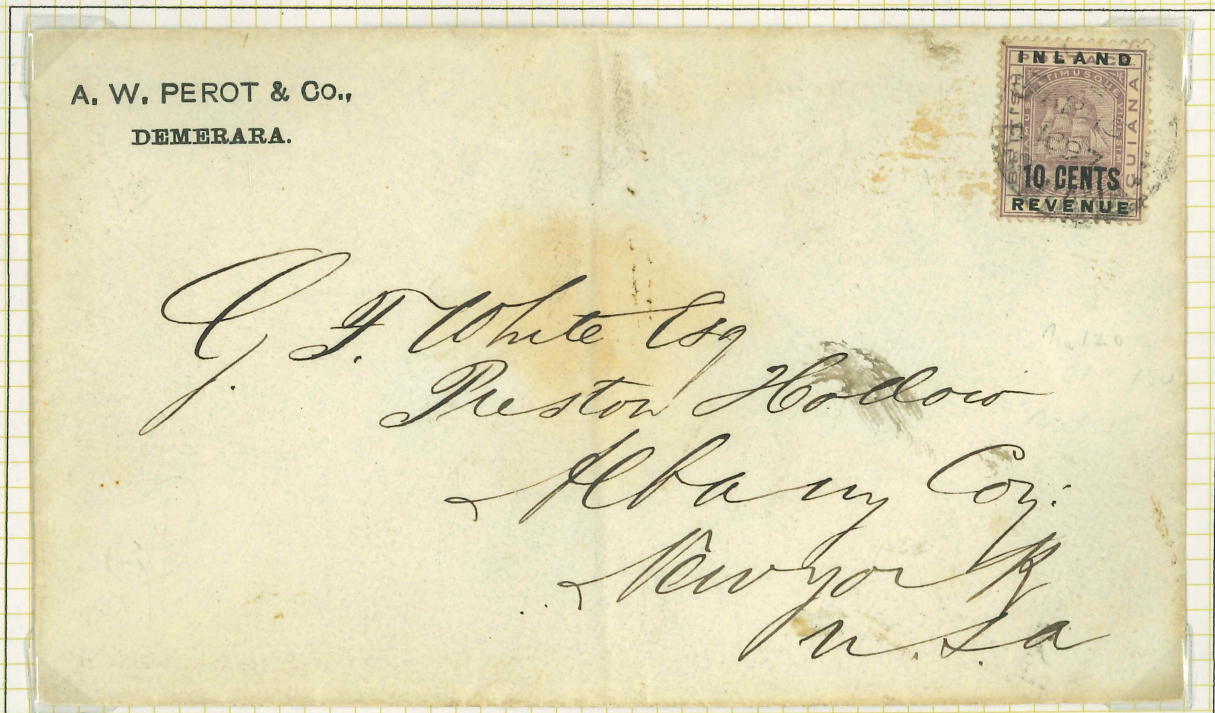 A. W. PEROT & Co.,
DEMERARA.
INLAND
BRITISH
GUIANA
10 CENTS
REVENUE
G. F. White Esq
Preston Hollow
Albany Coy:
New york
U.S.a
No 120